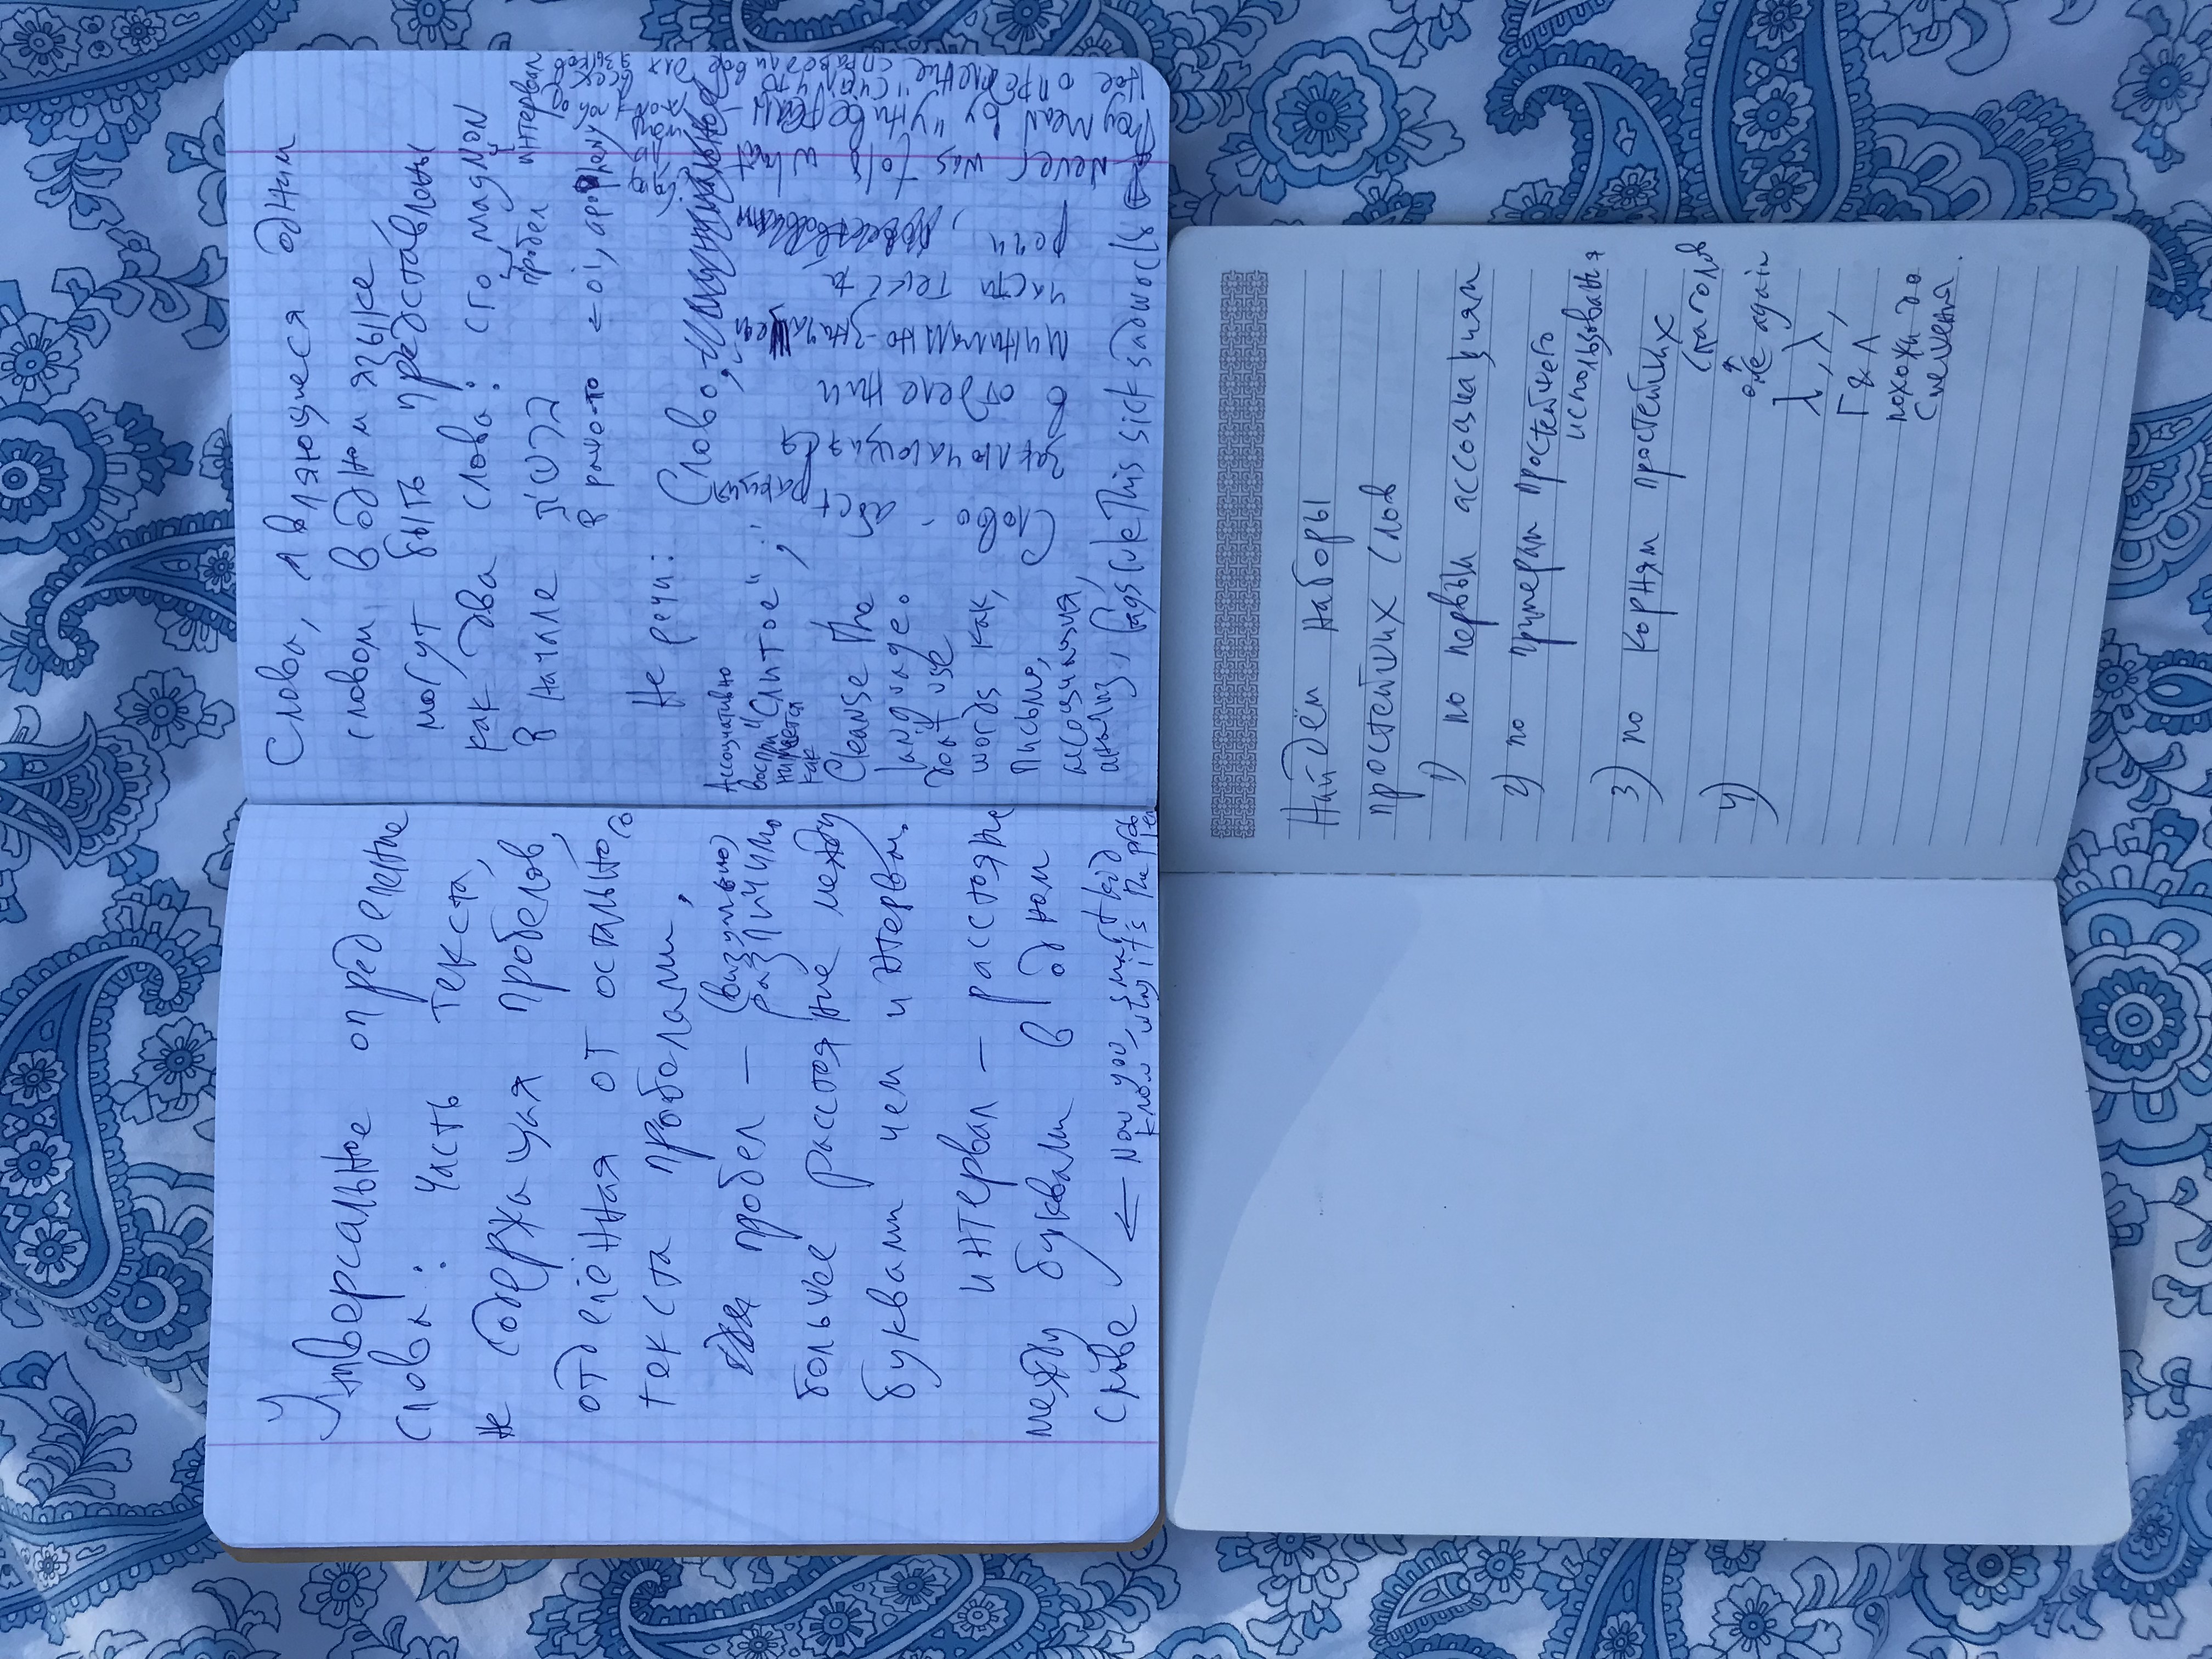 Универсальное определение
слова: часть текста,
не содержащая пробелов,
отделённая от остального
текста пробелами,
пробел — (визуально)
различимо
большее расстояние между
буквами чем интервал.
интервал — расстояние
между буквами в одном
слове ← Now you, smart kid
know why it's the problem
Слова, являющиеся одним
словом в одном языке,
могут быть представлены
как два слова: cro magnon
пробел интервал
В начале ברשית
← oi, apophery
Не речи:
Ассоциативно
воспри "Слитое" ;
нимается
как
Cleanse the
language.
don't use
words как,
письмо,
ассоциация,
анализ,
this sick sad world
Слово,
Слово - абстракция
заключающаяся
в отделении
минимально-значащей
части текста
речи,
I never was told what
they mean by "универсаль-
ное определение"
справедливое для всех
языков
Найдём наборы
простейших слов
1) по первым ассоциациям
2) по примерам простейшего
использования
3) по корням простейших
глаголов
4)
one again
λ, λ,
Г & Л
похожи до
смешения.